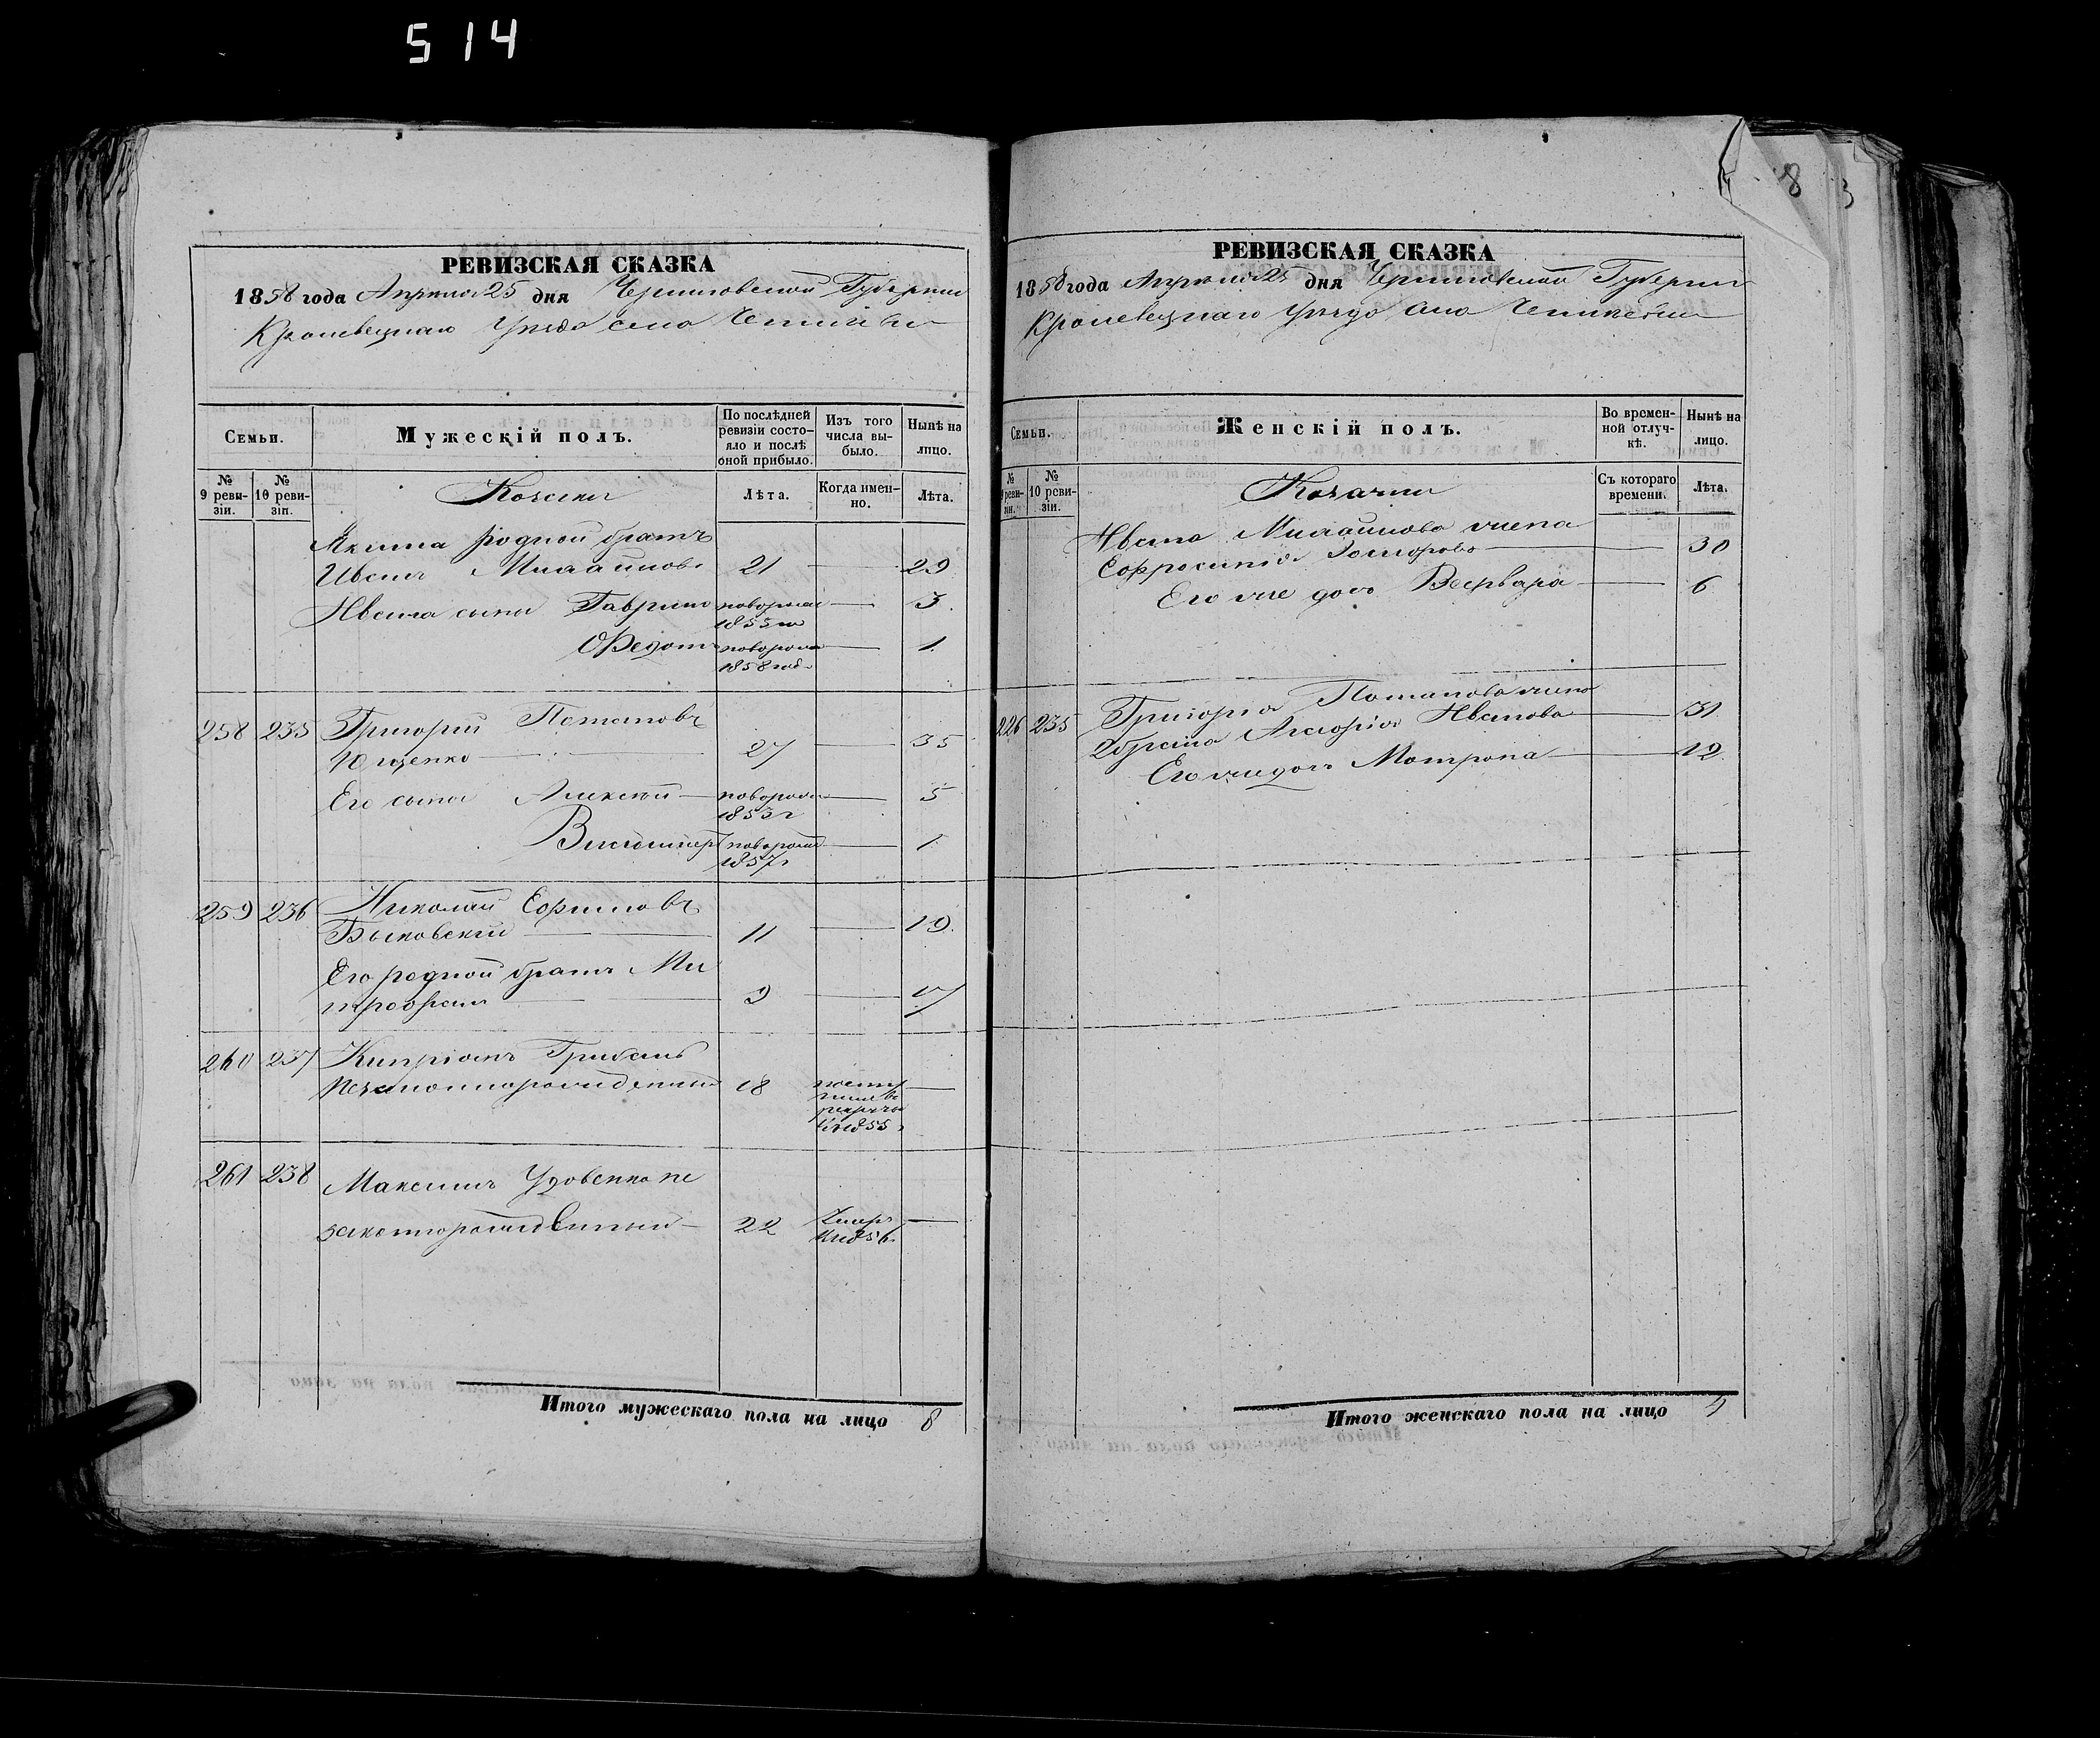 514
8
РЕВИЗСКАЯ СКАЗКА
1858 года Апреля 25 дня Черниговской Губернии
Кролевецкаго Уезда села
Семьи.
Мужескій полъ.
По послѣдней ревизіи состояло и послѣ оной прибыло.
Изъ того числа выбыло.
Нынѣ на лицо.
№ 9 ревизіи.
№ 10 ревизіи.
Козаки
Лѣта.
Когда именно.
Лѣта.
родной братъ
Иванъ Михайловъ 21 29
Ивана сыны Гаврило новорож 1855 го 3
Федотъ новорож 1858 год 1
258 235 Григорій Потаповъ
Ющенко 27 35
Его сыны Алексѣй новорож 1853 г 5
Владимиръ новорож 1857 г 1
259 236 Николай Ефимовъ
Быковскій 11 19
Его родной братъ Ми
трофанъ 9 17
260 237 Кипріянъ Грибань
незаконнорожденный 18 посту
пилъ въ
рекруты
въ 1855 г
261 238 Максимъ Удовенко не
законнорожденный 22 Умеръ
1856
Итого мужескаго пола на лицо 8
РЕВИЗСКАЯ СКАЗКА
1858 года Апреля 25 дня Черниговской Губернии
Кролевецкаго Уезда села
Семьи.
Женскій полъ.
Во временной отлучкѣ.
Нынѣ на лицо.
№ 9 ревизіи.
№ 10 ревизіи.
Козачки
Съ котораго времени.
Лѣта.
Ивана Михайлова жена
Ефросинія 30
Его же дочь Варвара 6
226 235 Григорія Потапова жена
Иванова 31
Его же дочь Мотрона 12
Итого женскаго пола на лицо 4